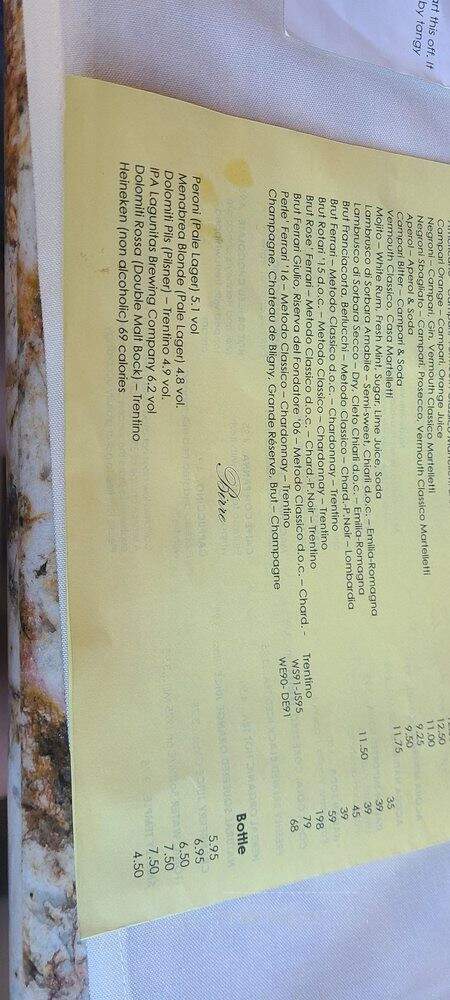 art this off. It
by tangy
Campari Orange – Campari, Orange Juice
Negroni – Campari, Gin, Vermouth Classico Martelletti
Negroni Sbagliato – Campari, Prosecco, Vermouth Classico Martelletti 12.50
Aperol – Aperol & Soda 11.00
Campari Bitter – Campari & Soda 9.25
Vermouth Classico, Casa Martelletti 9.50
Mojito – White Rum, Fresh Mint, Sugar, Lime Juice, Soda 11.75
Lambrusco di Sorbara Amabile – Semi-sweet, Chiarli d.o.c. – Emilia-Romagna 35
Lambrusco di Sorbara Secco – Dry, Cleto Chiarli d.o.c. – Emilia-Romagna 39
Brut Franciacorta, Berlucchi – Metodo Classico – Chard.-P.Noir – Lombardia 11.50 39
Brut Ferrari – Metodo Classico d.o.c. – Chardonnay – Trentino 45
Brut Rotari '15 d.o.c. – Metodo Classico – Chardonnay – Trentino 39
Brut Rose' Ferrari – Metodo Classico d.o.c. – Chard.-P.Noir – Trentino 59
Brut Ferrari Giulio, Riserva del Fondatore '06 – Metodo Classico d.o.c. – Chard. - Trentino 198
Perle' Ferrari '16 – Metodo Classico – Chardonnay – Trentino WS91-JS95 79
Champagne, Chateau de Bligny, Grande Réserve, Brut – Champagne WE90- DE91 68
Birre Bottle
Peroni (Pale Lager) 5.1 vol 5.95
Menabrea Blonde (Pale Lager) 4.8 vol. 6.95
Dolomiti Pils (Pilsner) – Trentino 4.9 vol. 6.50
IPA Lagunitas Brewing Company 6.2 vol 7.50
Dolomiti Rossa (Double Malt Bock) – Trentino 7.50
Heineken (non alcoholic) 69 calories 4.50